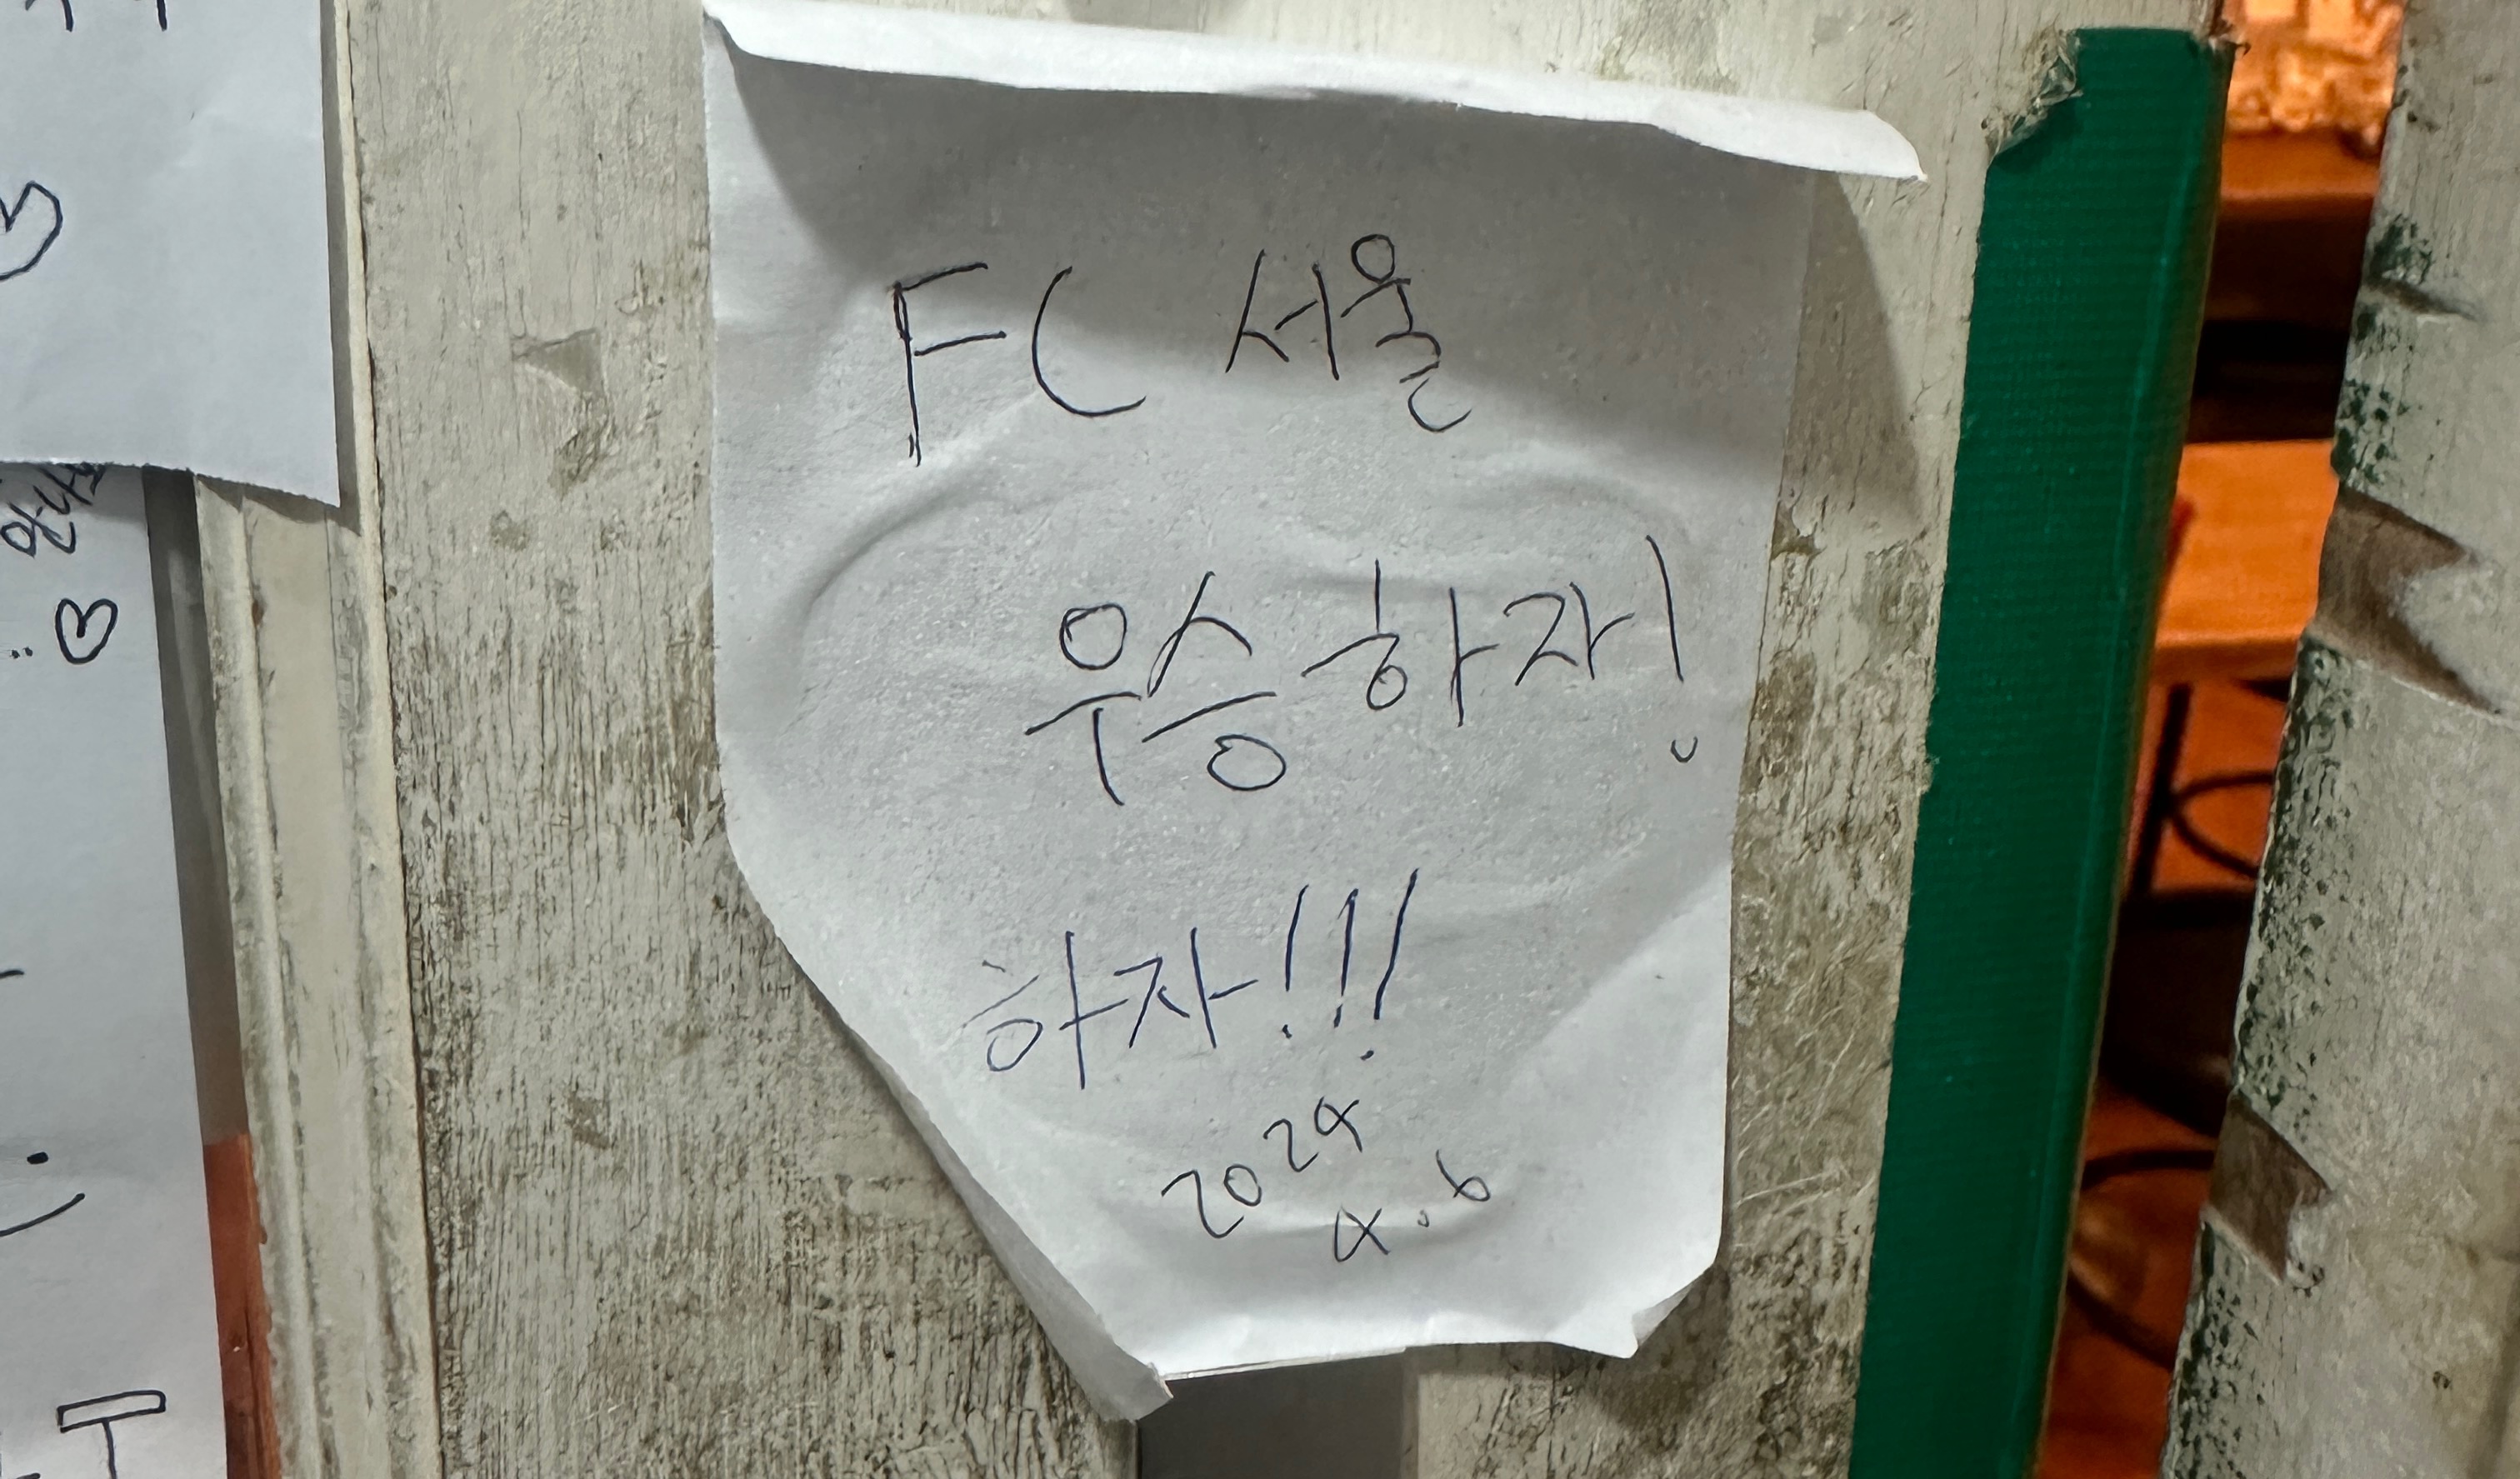 FC 서울
우승하자!
하자!!!
2024
4.6